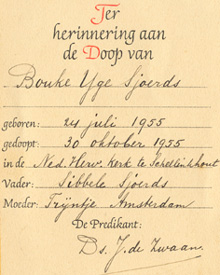 Ter
herinnering aan
de Doop van
Bouke Yge Sjoerds
geboren: 24 juli 1955
gedoopt: 30 oktober 1955
in de Ned. Herv. Kerk te Schellinkhout
Vader: Sibbele Sjoerds
Moeder: Trijntje Amsterdam
De Predikant:
Ds. J. de Zwaan